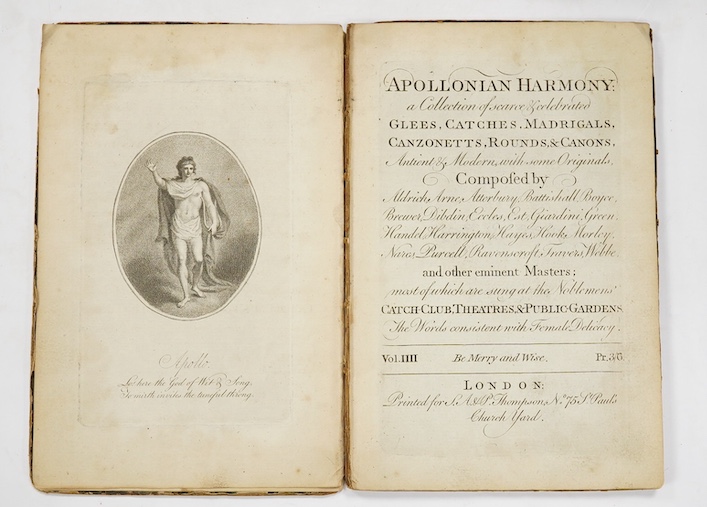 Apollo
Lo here the God of Wit & Song,
To mirth invites the tuneful throng.
APOLLONIAN HARMONY:
a Collection of scarce & celebrated
GLEES, CATCHES, MADRIGALS,
CANZONETTS, ROUNDS, & CANONS,
Antient & Modern, with some Originals,
Composed by
Aldrich, Arne, Atterbury, Battishall, Boyce,
Brewer, Dibdin, Eccles, Est, Giardini, Green,
Handel, Harrington, Haye, Hook, Morley,
Nares, Purcell, Ravenscroft, Travers, Webbe
and other eminent Masters;
most of which are sung at the Noblemens'
CATCH-CLUB, THEATRES, & PUBLIC-GARDENS.
The Words consistent with Female Delicacy.
Vol. IIII Be Merry and Wise. Pr. 3/6
LONDON:
Printed for S. A. & P. Thompson, No. 75 St. Paul's
Church Yard.